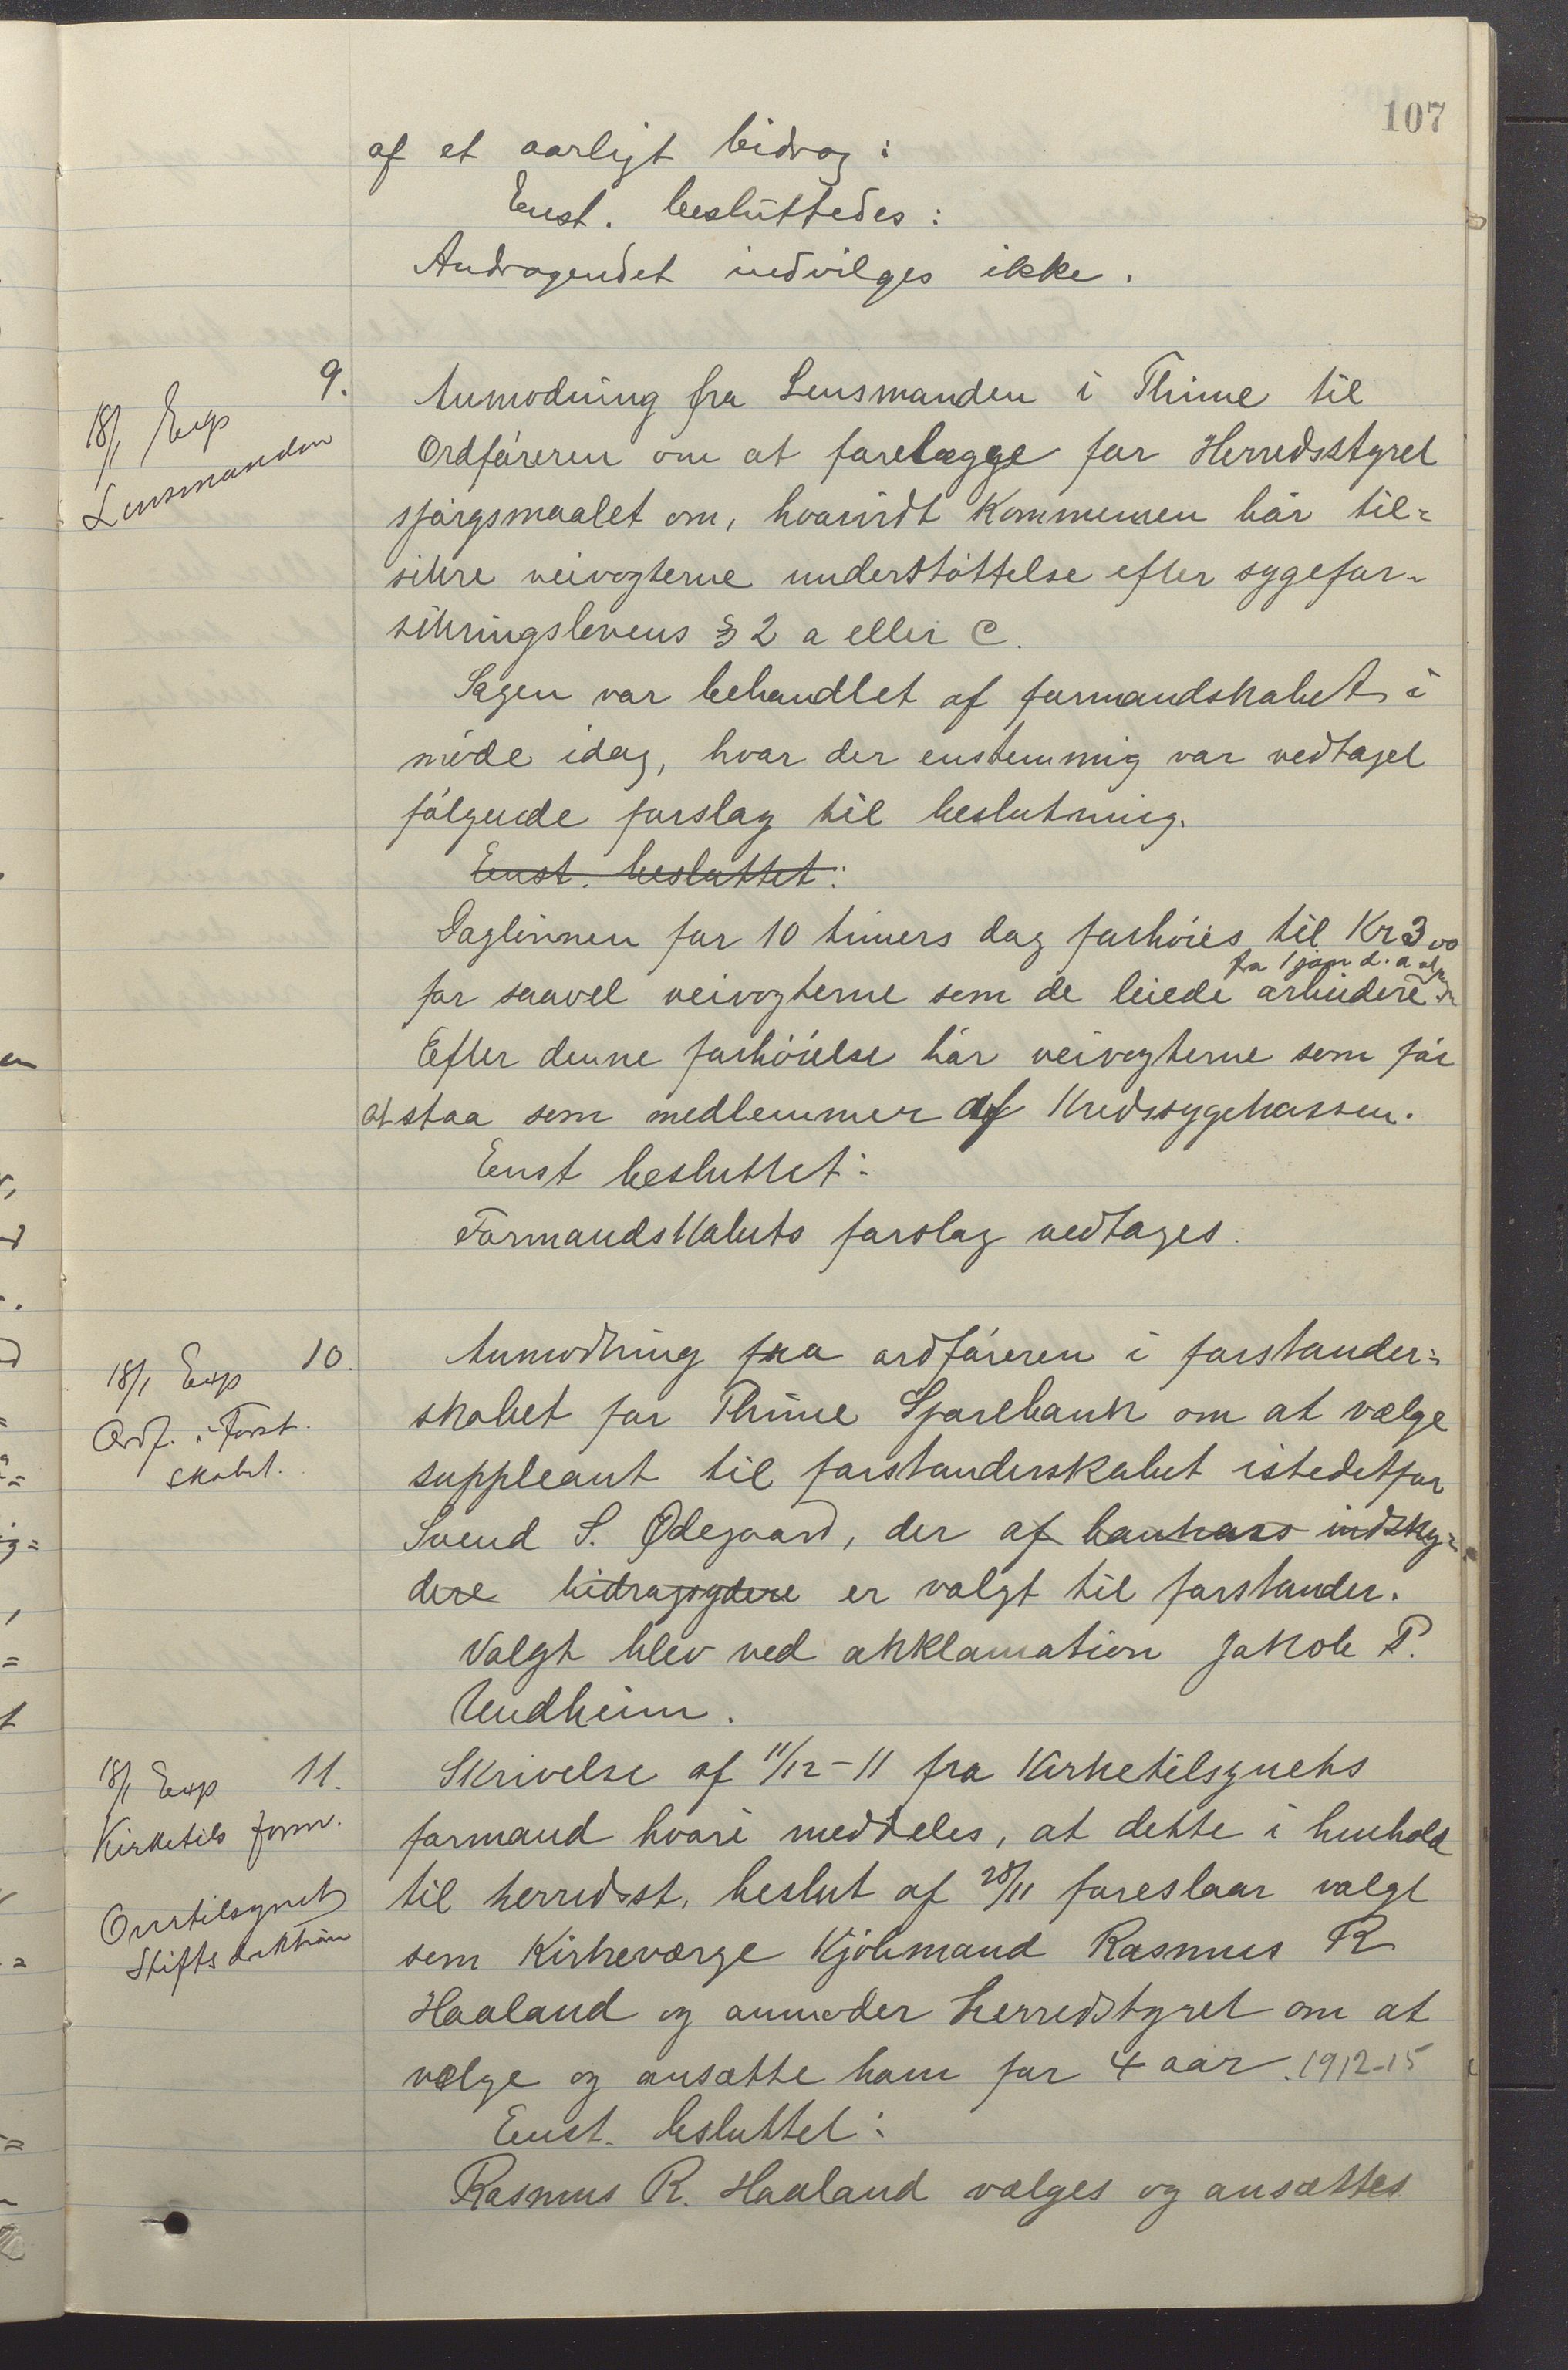 107
af et aarligt bidrag:
Enst. besluttedes:
Andragendet indvilges ikke.
9.
18/1 Exp
Lensmanden
Anmodning fra Lensmanden i Thime til
Ordføreren om at forelægge for Herredsstyret
spørgsmaalet om, hvorvidt Kommunen bør til=
sikre veivogterne understøttelse efter sygefor-
sikringslovens § 2 a eller c.
Sagen var behandlet af formandskabet i
møde idag, hvor der enstemmig var vedtaget
følgende forslag til beslutning.
Enst. besluttet:
Daglønnen for 10 timers dag forhøies til Kr 3 00
fra 1 jan d. a
for saavel veivogterne som de leiede arbeidere
Efter denne forhøielse bør veivogterne som før
at staa som medlemmer af Kredssygekassen.
Enst besluttet:
Formandskabets forslag vedtages.
10.
18/1 Exp
Ordf. i Forst.
skabet.
Anmodning fra ordføreren i forstander=
skabet for Thime Sparebank om at vælge
suppleant til forstanderskabet istedetfor
Svend S. Ødegaard, der af bankens indsky=
dere bidragsydere er valgt til forstander.
Valgt blev ved akklamation Jakob P.
Undheim.
11.
18/1 Exp
Kirketils form.
Overtilsynet
Stiftsdirektion
Skrivelse af 11/12-11 fra Kirketilsynets
formand hvori meddeles, at dette i henhold
til herredsst. beslut af 28/11 foreslaar valgt
som Kirkeværge Kjøbmand Rasmus R
Haaland og anmoder herredstyret om at
vælge og ansætte ham for 4 aar. 1912-15
Enst. besluttet:
Rasmus R. Haaland vælges og ansættes